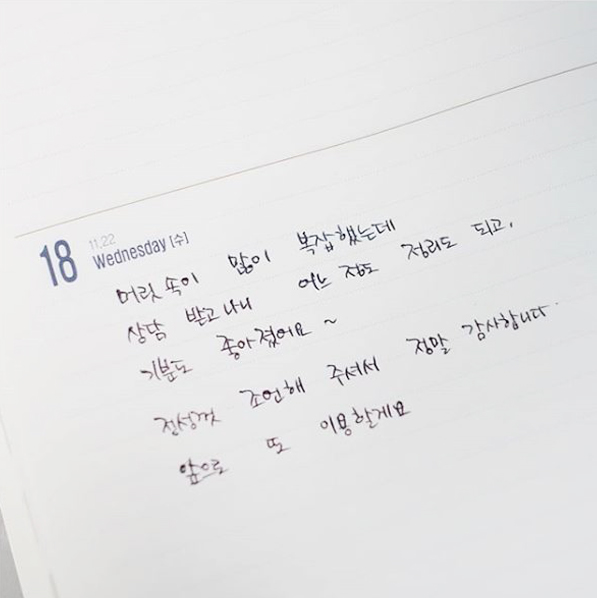 18
11.22
Wednesday [수]
머릿 속이 많이 복잡했는데
상담 받고나니 어느 정도 정리도 되고,
기분도 좋아졌어요~
진성껏 조언해 주셔서 정말 감사합니다.
앞으로 또 이용할게요